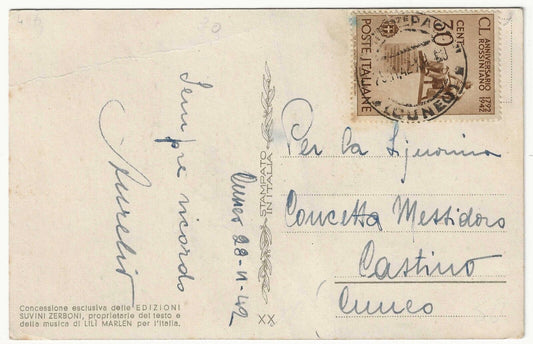 30
Sempre ricordo
Aurelio
Cuneo 28-11-42
STAMPATO
IN ITALIA
XX
Concessione esclusiva delle EDIZIONI
SUVINI ZERBONI, proprietarie del testo e
della musica di LILÌ MARLEN per l'Italia.
CL ANNIVERSARIO
ROSSINIANO
1792
1942
CENT 30
POSTE ITALIANE
(CUNEO)
Per la Signorina
Concetta Messidoro
Castino
Cuneo